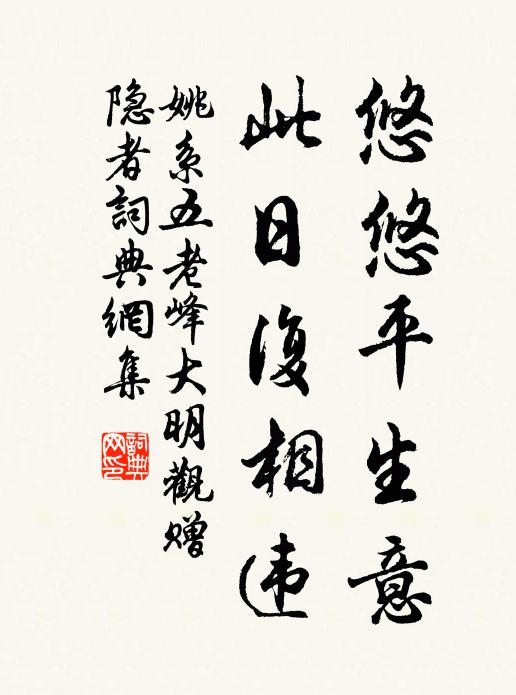 悠悠平生意
此日复相违
姚系五老峰大明觀赠
隐者詞典網集
詞典网印